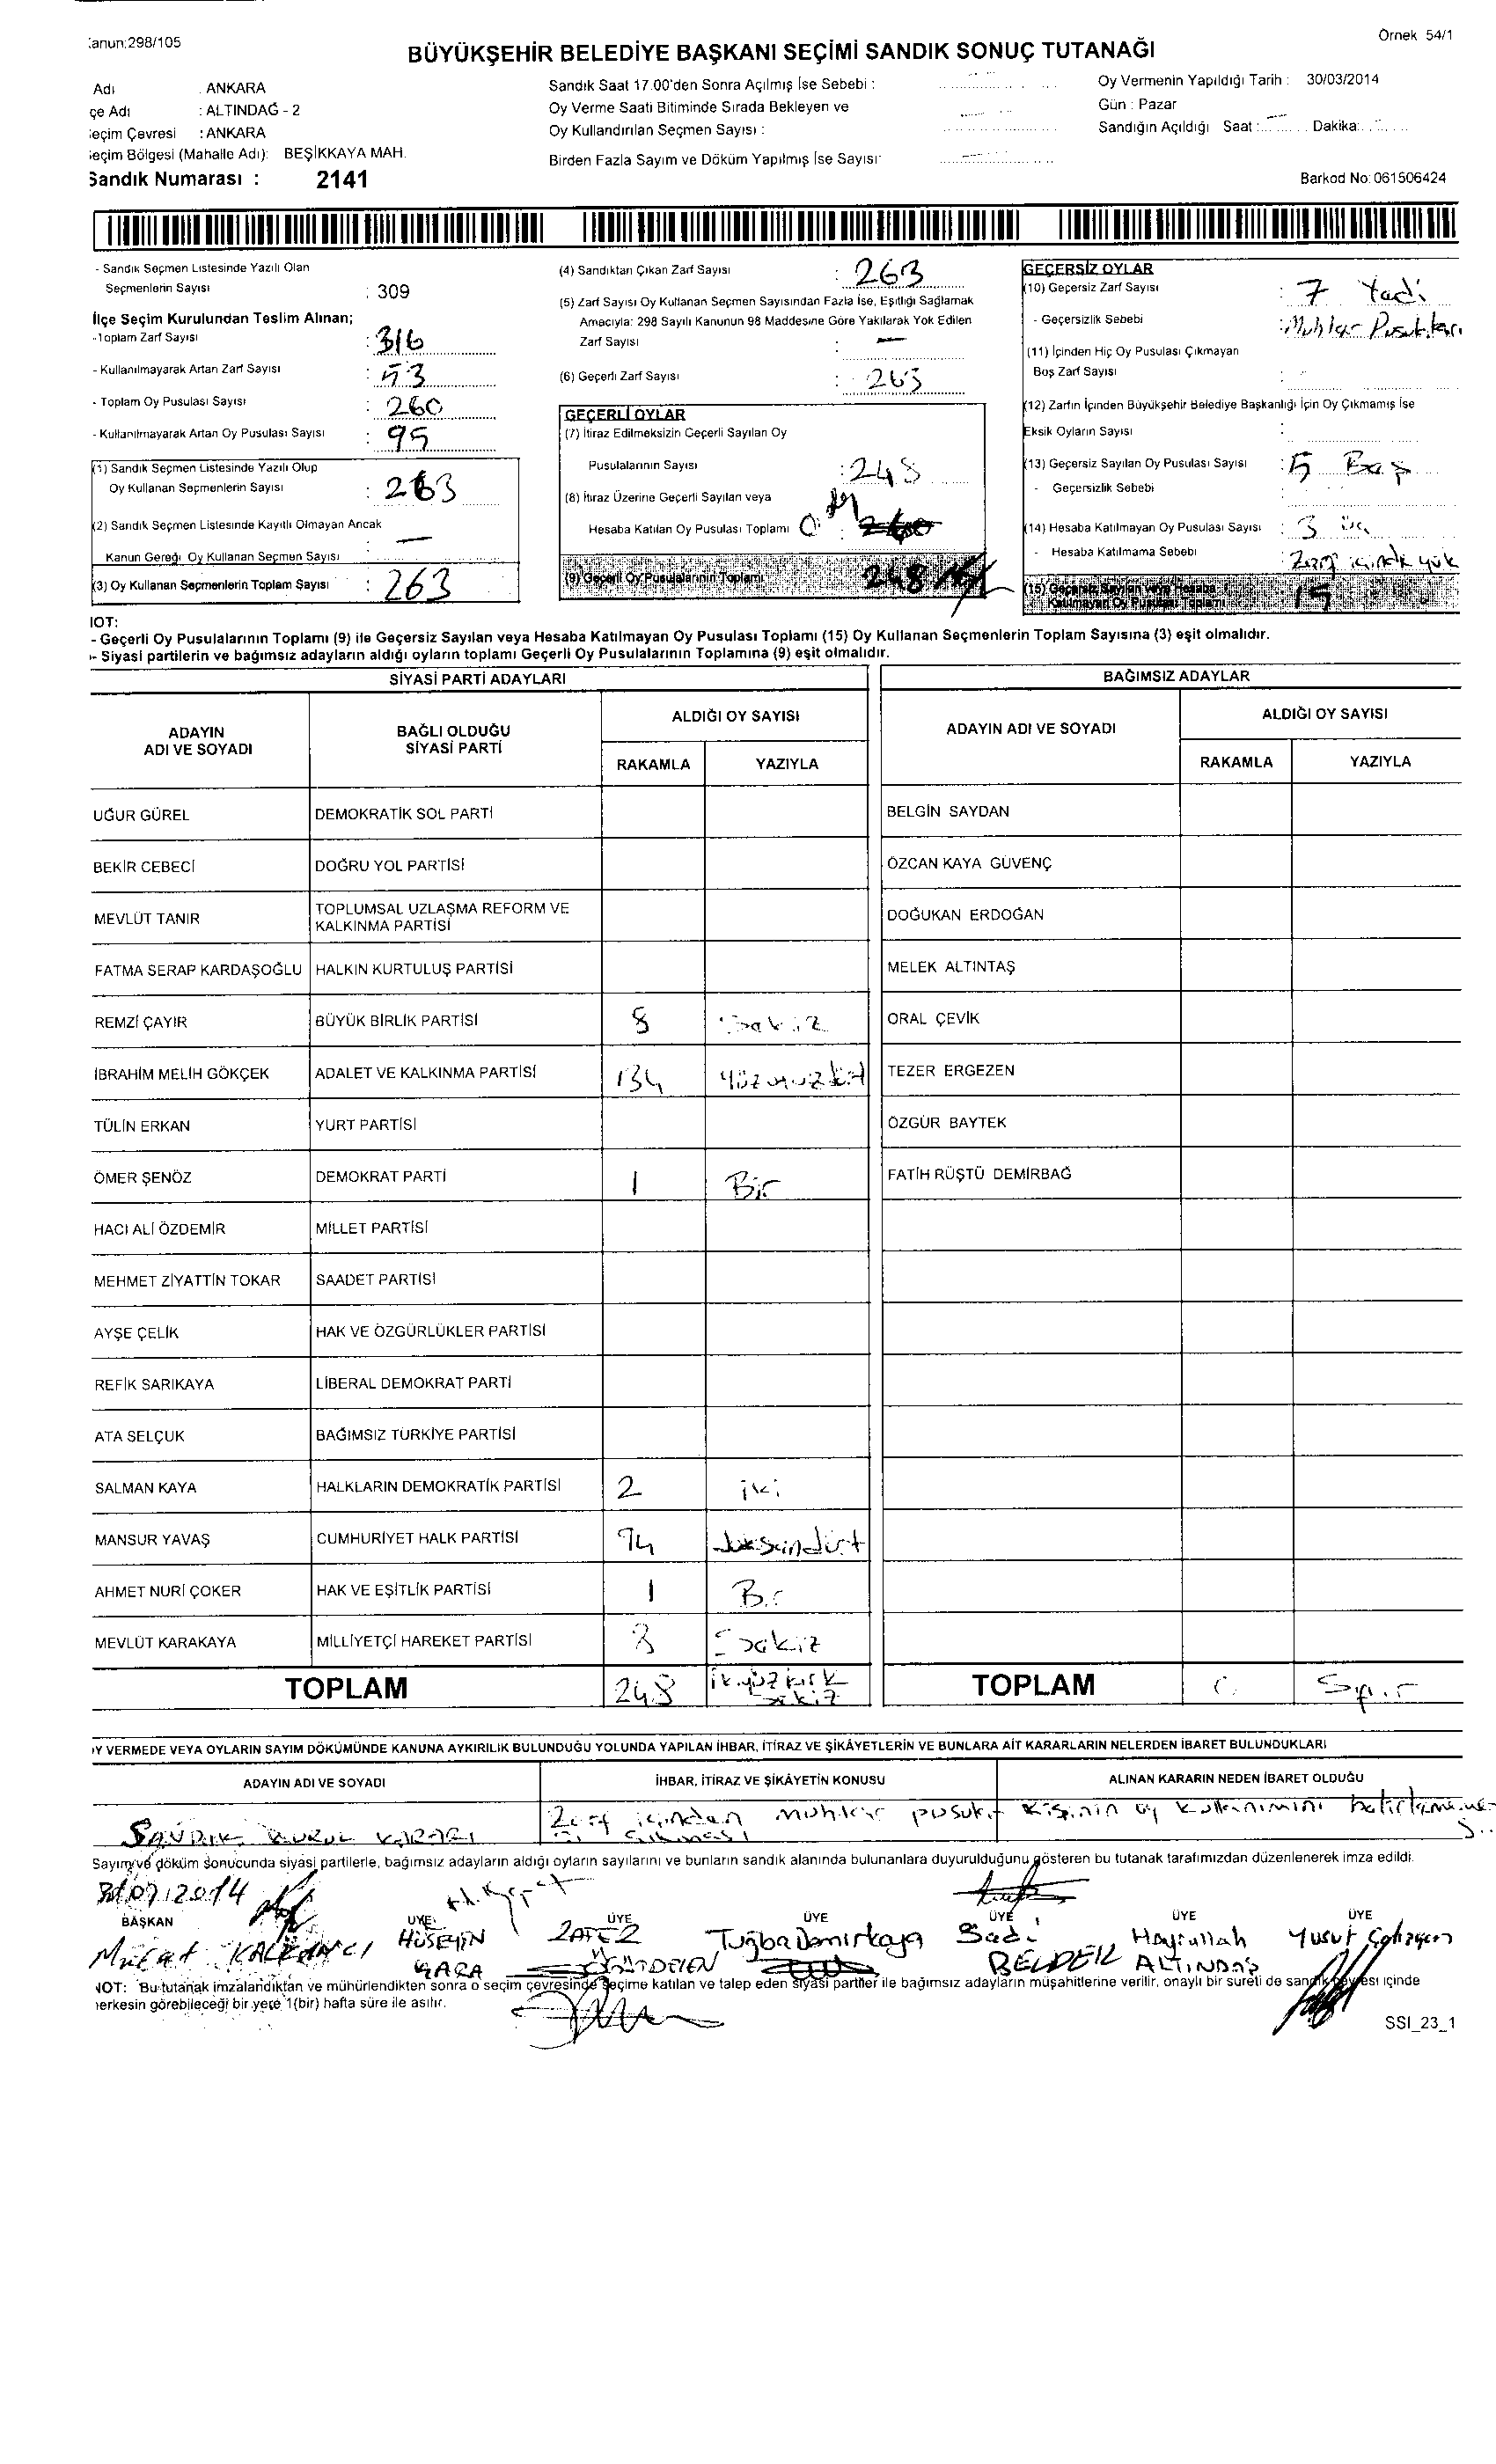 Kanun:298/105
Örnek 54/1
BÜYÜKŞEHİR BELEDİYE BAŞKANI SEÇİMİ SANDIK SONUÇ TUTANAĞI
Adı : ANKARA
çe Adı : ALTINDAĞ - 2
eçim Çevresi : ANKARA
eçim Bölgesi (Mahalle Adı): BEŞİKKAYA MAH.
Sandık Numarası : 2141
Sandık Saat 17.00'den Sonra Açılmış İse Sebebi :
Oy Verme Saati Bitiminde Sırada Bekleyen ve
Oy Kullandırılan Seçmen Sayısı :
Birden Fazla Sayım ve Döküm Yapılmış İse Sayısı:
Oy Vermenin Yapıldığı Tarih : 30/03/2014
Gün : Pazar
Sandığın Açıldığı Saat : Dakika:
Barkod No: 061506424
- Sandık Seçmen Listesinde Yazılı Olan
Seçmenlerin Sayısı : 309
İlçe Seçim Kurulundan Teslim Alınan;
-Toplam Zarf Sayısı : 316
- Kullanılmayarak Artan Zarf Sayısı : 53
- Toplam Oy Pusulası Sayısı : 260
- Kullanılmayarak Artan Oy Pusulası Sayısı : 95
(1) Sandık Seçmen Listesinde Yazılı Olup
Oy Kullanan Seçmenlerin Sayısı : 263
(2) Sandık Seçmen Listesinde Kayıtlı Olmayan Ancak
Kanun Gereği Oy Kullanan Seçmen Sayısı : —
(3) Oy Kullanan Seçmenlerin Toplam Sayısı : 263
(4) Sandıktan Çıkan Zarf Sayısı : 263
(5) Zarf Sayısı Oy Kullanan Seçmen Sayısından Fazla İse, Eşitliği Sağlamak
Amacıyla: 298 Sayılı Kanunun 98 Maddesine Göre Yakılarak Yok Edilen
Zarf Sayısı : —
(6) Geçerli Zarf Sayısı : 263
GEÇERLİ OYLAR
(7) İtiraz Edilmeksizin Geçerli Sayılan Oy
Pusulalarının Sayısı : 248
(8) İtiraz Üzerine Geçerli Sayılan veya
Hesaba Katılan Oy Pusulası Toplamı 0 : 260
(9) Geçerli Oy Pusulalarının Toplamı 248
GEÇERSİZ OYLAR
(10) Geçersiz Zarf Sayısı : 7 Yedi
- Geçersizlik Sebebi : Muhtar Pusulaları
(11) İçinden Hiç Oy Pusulası Çıkmayan
Boş Zarf Sayısı : -
(12) Zarfın İçinden Büyükşehir Belediye Başkanlığı İçin Oy Çıkmamış İse
Eksik Oyların Sayısı :
(13) Geçersiz Sayılan Oy Pusulası Sayısı : 5 Beş
- Geçersizlik Sebebi :
(14) Hesaba Katılmayan Oy Pusulası Sayısı : 3 üç
- Hesaba Katılmama Sebebi : Zarf içinde yok
(15) Geçersiz Sayılan veya Hesaba
Katılmayan Oy Pusulası Toplamı 15
NOT:
- Geçerli Oy Pusulalarının Toplamı (9) ile Geçersiz Sayılan veya Hesaba Katılmayan Oy Pusulası Toplamı (15) Oy Kullanan Seçmenlerin Toplam Sayısına (3) eşit olmalıdır.
- Siyasi partilerin ve bağımsız adayların aldığı oyların toplamı Geçerli Oy Pusulalarının Toplamına (9) eşit olmalıdır.
SİYASİ PARTİ ADAYLARI
ADAYIN ADI VE SOYADI
BAĞLI OLDUĞU SİYASİ PARTİ
ALDIĞI OY SAYISI
RAKAMLA YAZIYLA
UĞUR GÜREL DEMOKRATİK SOL PARTİ
BEKİR CEBECİ DOĞRU YOL PARTİSİ
MEVLÜT TANIR TOPLUMSAL UZLAŞMA REFORM VE
KALKINMA PARTİSİ
FATMA SERAP KARDAŞOĞLU HALKIN KURTULUŞ PARTİSİ
REMZİ ÇAYIR BÜYÜK BİRLİK PARTİSİ 8 Sekiz
İBRAHİM MELİH GÖKÇEK ADALET VE KALKINMA PARTİSİ 134 yüzotuzdört
TÜLİN ERKAN YURT PARTİSİ
ÖMER ŞENÖZ DEMOKRAT PARTİ 1 Bir
HACI ALİ ÖZDEMİR MİLLET PARTİSİ
MEHMET ZİYATTİN TOKAR SAADET PARTİSİ
AYŞE ÇELİK HAK VE ÖZGÜRLÜKLER PARTİSİ
REFİK SARIKAYA LİBERAL DEMOKRAT PARTİ
ATA SELÇUK BAĞIMSIZ TÜRKİYE PARTİSİ
SALMAN KAYA HALKLARIN DEMOKRATİK PARTİSİ 2 iki
MANSUR YAVAŞ CUMHURİYET HALK PARTİSİ 94
AHMET NURİ ÇOKER HAK VE EŞİTLİK PARTİSİ 1 Bir
MEVLÜT KARAKAYA MİLLİYETÇİ HAREKET PARTİSİ 8 Sekiz
TOPLAM 248 ikiyüz kırk
sekiz
BAĞIMSIZ ADAYLAR
ADAYIN ADI VE SOYADI
ALDIĞI OY SAYISI
RAKAMLA YAZIYLA
BELGİN SAYDAN
ÖZCAN KAYA GÜVENÇ
DOĞUKAN ERDOĞAN
MELEK ALTINTAŞ
ORAL ÇEVİK
TEZER ERGEZEN
ÖZGÜR BAYTEK
FATİH RÜŞTÜ DEMİRBAĞ
TOPLAM 0 Sıfır
OY VERMEDE VEYA OYLARIN SAYIM DÖKÜMÜNDE KANUNA AYKIRILIK BULUNDUĞU YOLUNDA YAPILAN İHBAR, İTİRAZ VE ŞİKÂYETLERİN VE BUNLARA AİT KARARLARIN NELERDEN İBARET BULUNDUKLARI
ADAYIN ADI VE SOYADI
İHBAR, İTİRAZ VE ŞİKÂYETİN KONUSU
ALINAN KARARIN NEDEN İBARET OLDUĞU
SANDIK KURUL KARARI
Zarf içinden muhtar pusulası
çıkması
Kişinin oy kullanımını
Sayım ve döküm sonucunda siyasi partilerle, bağımsız adayların aldığı oyların sayılarını ve bunların sandık alanında bulunanlara duyurulduğunu gösteren bu tutanak tarafımızdan düzenlenerek imza edildi.
BAŞKAN ÜYE ÜYE ÜYE ÜYE ÜYE ÜYE
Murat KALKANCI
HÜSEYİN KARA
ZAFER
Tuğba Demirkaya
Sadi BELDEK
Hayrullah ALTINDAŞ
Yusuf
NOT: Bu tutanak imzalandıktan ve mühürlendikten sonra o seçim çevresinde seçime katılan ve talep eden siyasi partiler ile bağımsız adayların müşahitlerine verilir, onaylı bir sureti de sandık çevresi içinde
herkesin görebileceği bir yere 1(bir) hafta süre ile asılır.
SSI_23_1